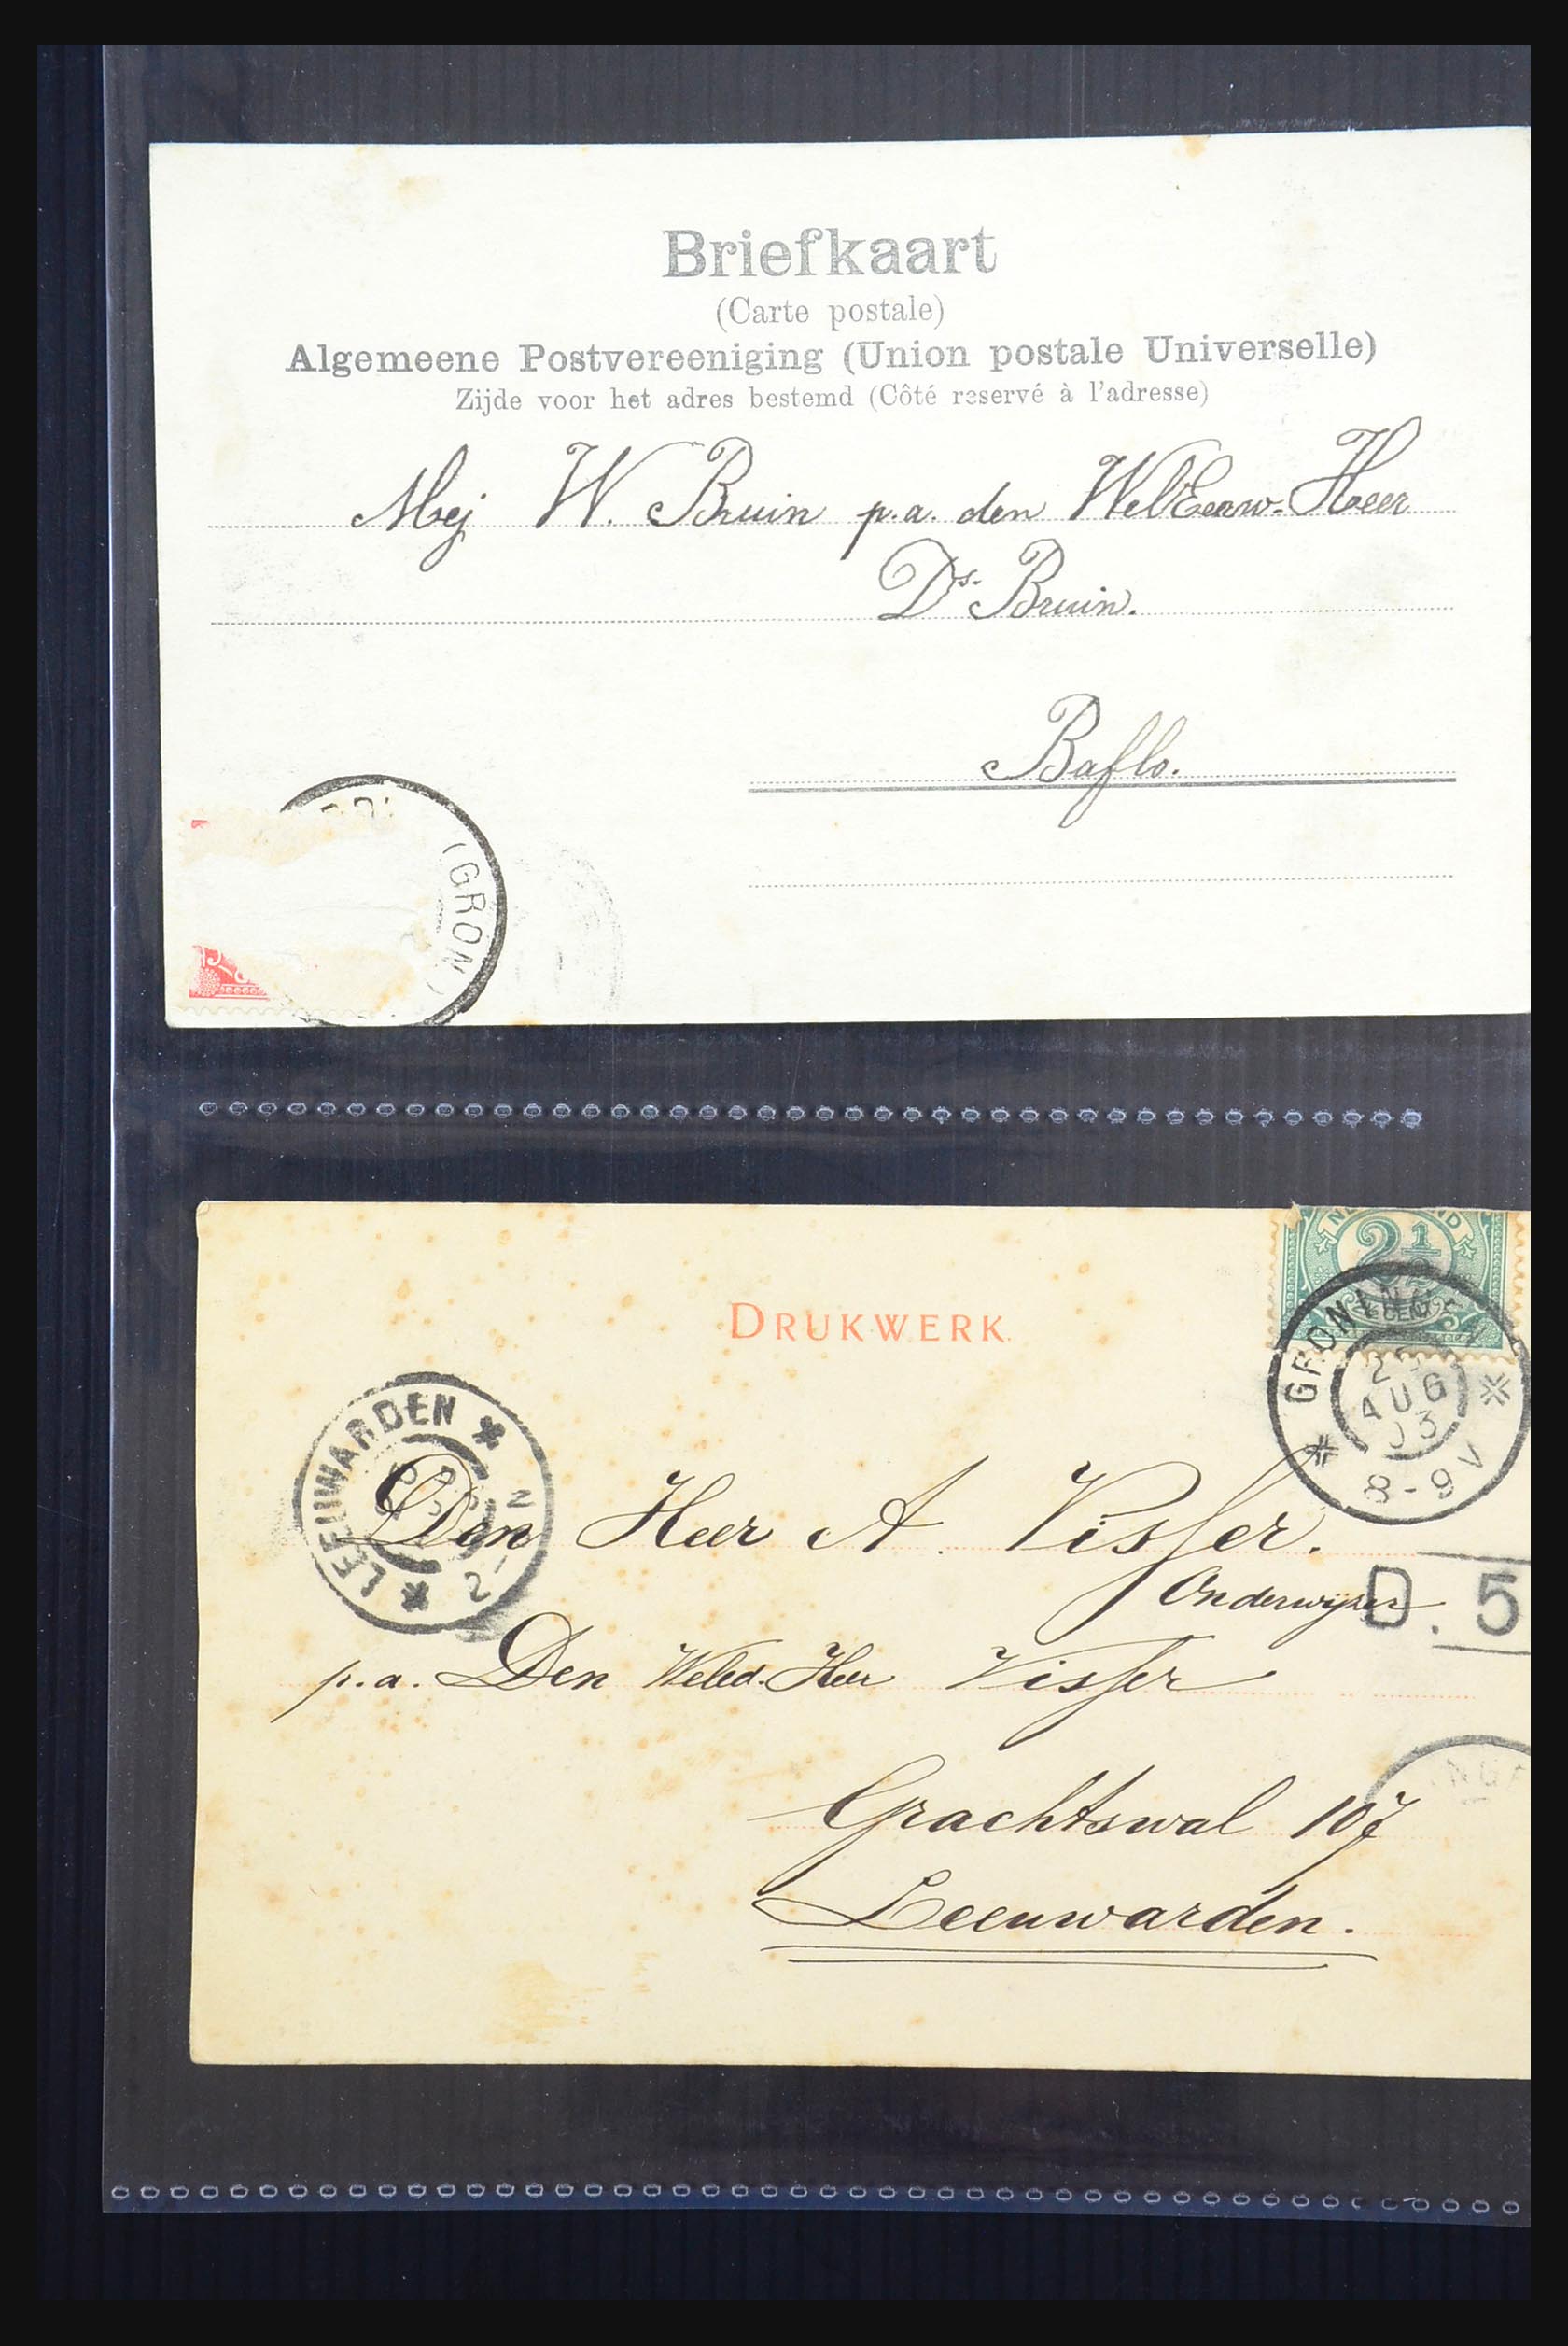 Briefkaart
(Carte postale)
Algemeene Postvereeniging (Union postale Universelle)
Zijde voor het adres bestemd (Côté reservé à l'adresse)
Mej W. Bruin p.a. den WelEerw. Heer
Ds. Bruin.
Baflo.
(GRON)
DRUKWERK
NEDERLAND
2½
CENT
GRONINGEN
AUG
03
8-9 V
LEEUWARDEN
Den Heer A. Visser.
Onderwijzer
D. 5
p.a. Den Weled. Heer Visser
Grachtswal 107
Leeuwarden.